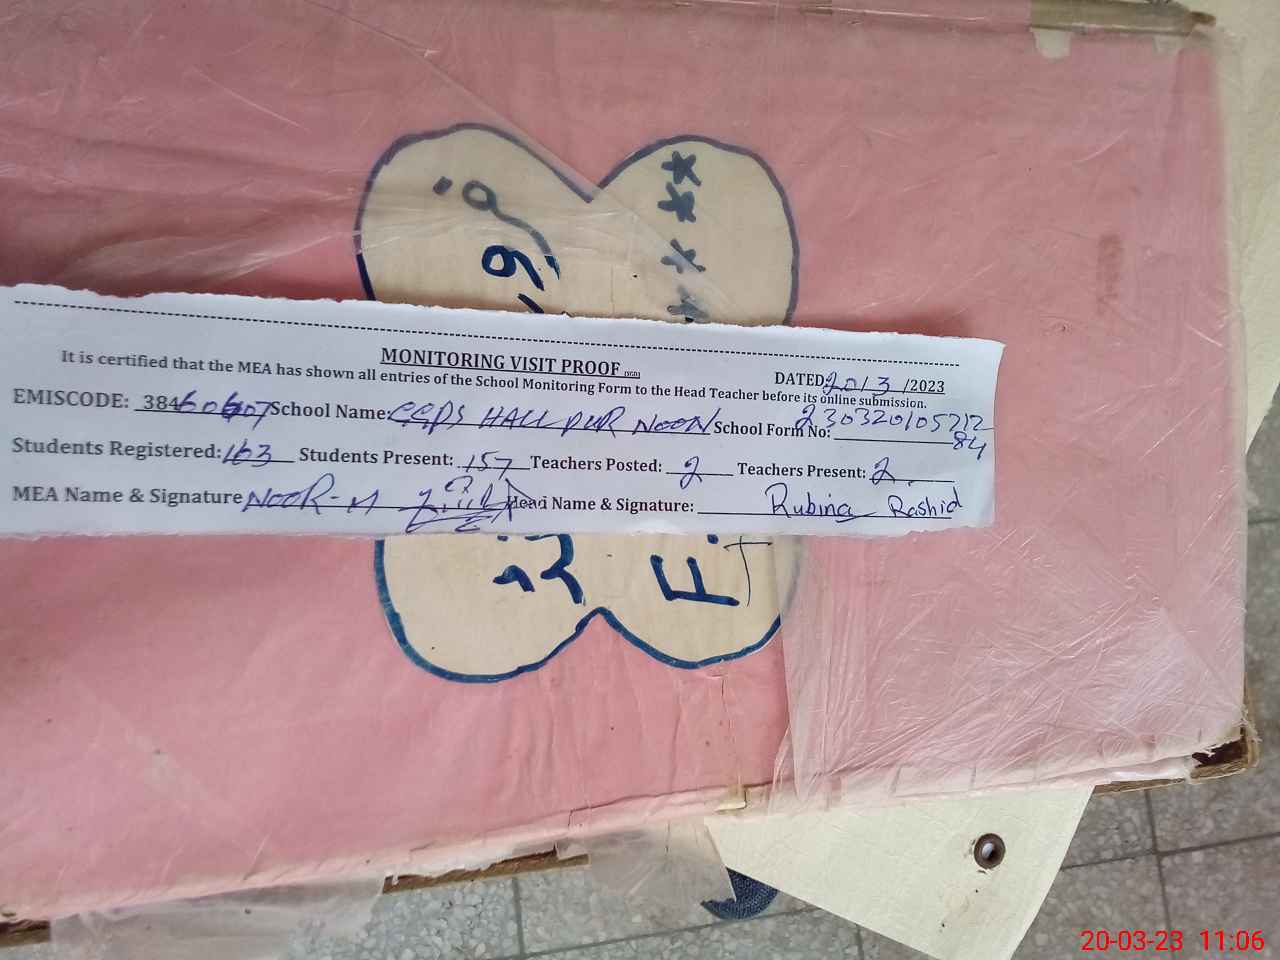 MONITORING VISIT PROOF (SGD)
It is certified that the MEA has shown all entries of the School Monitoring Form to the Head Teacher before its online submission.
DATED: 20/3/2023
EMISCODE: 38460607 School Name: GGPS HALL PUR NOON School Form No: 23032010571284
Students Registered: 163 Students Present: 157 Teachers Posted: 2 Teachers Present: 2
MEA Name & Signature NOOR-M Head Name & Signature: Rubina Rashid
20-03-23 11:06